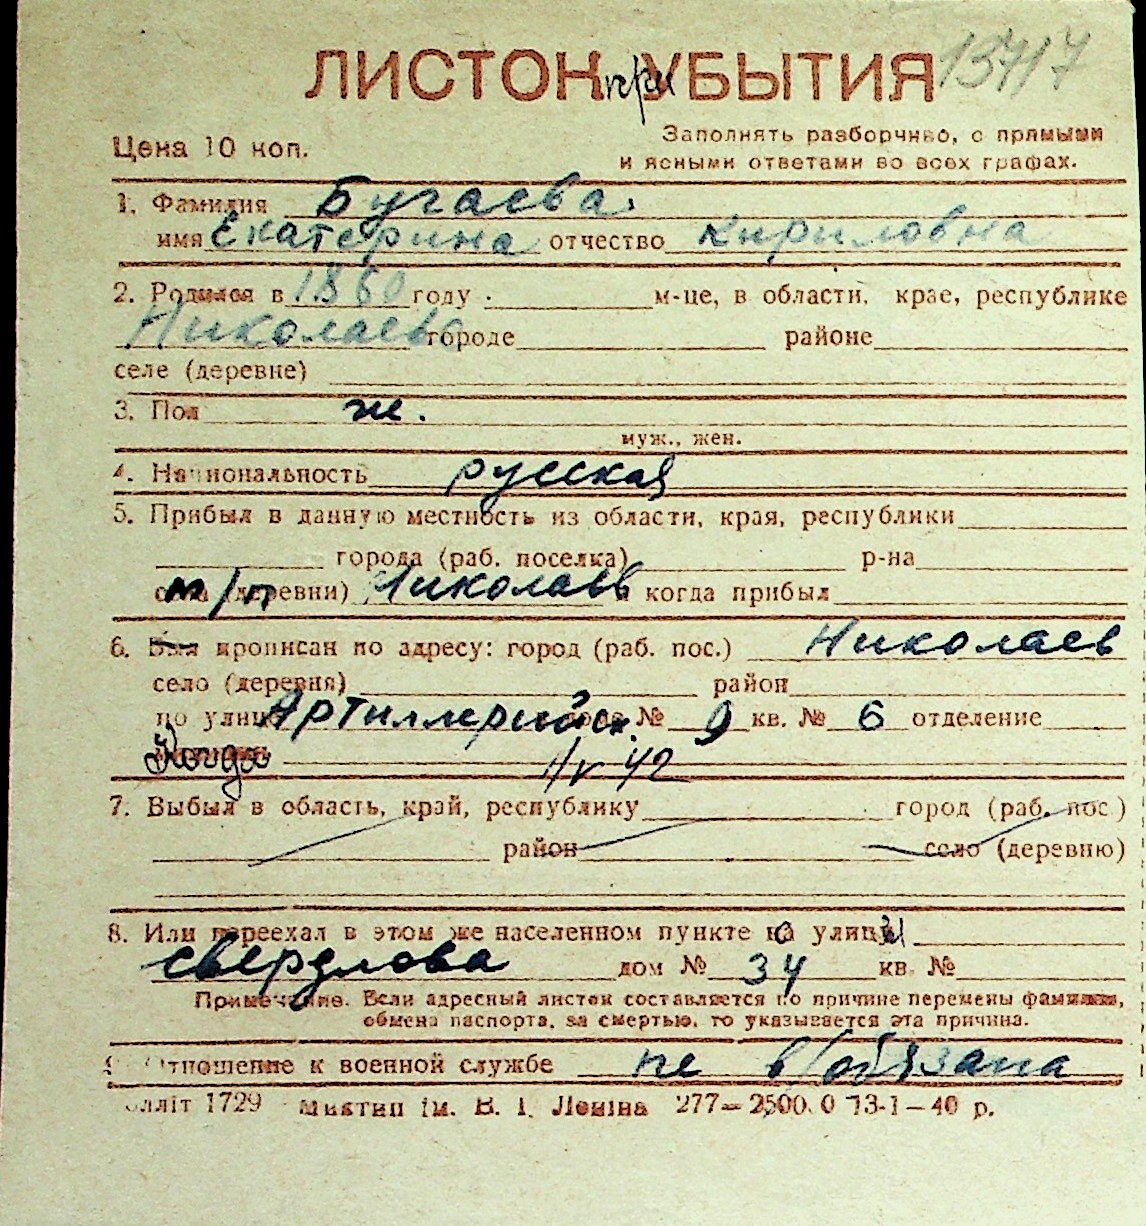 ЛИСТОК при УБЫТИЯ 13717
Цена 10 коп.
Заполнять разборчиво, с прямыми
и ясными ответами во всех графах.
1. Фамилия Бугаева
имя Екатерина отчество Кириловна
2. Родился в 1860 году м-це, в области, крае, республике
Николаев городе районе
селе (деревне)
3. Пол ж.
муж., жен.
4. Национальность русская
5. Прибыл в данную местность из области, края, республики
города (раб. поселка) р-на
м/п села (деревни) Николаев и когда прибыл
6. Был прописан по адресу: город (раб. пос.) Николаев
село (деревня) район
по улице Артиллерийск. дом № 9 кв. № 6 отделение
42
7. Выбыл в область, край, республику город (раб. пос)
район село (деревню)
8. Или переехал в этом же населенном пункте со улицы
Свердлова дом № 34 кв. №
Примечание. Если адресный листок составляется по причине перемены фамилии,
обмена паспорта, за смертью, то указывается эта причина.
Отношение к военной службе не в/обязана
олліт 1729 Миктип ім. В. І. Леніна 277—2500.0 13-1—40 р.